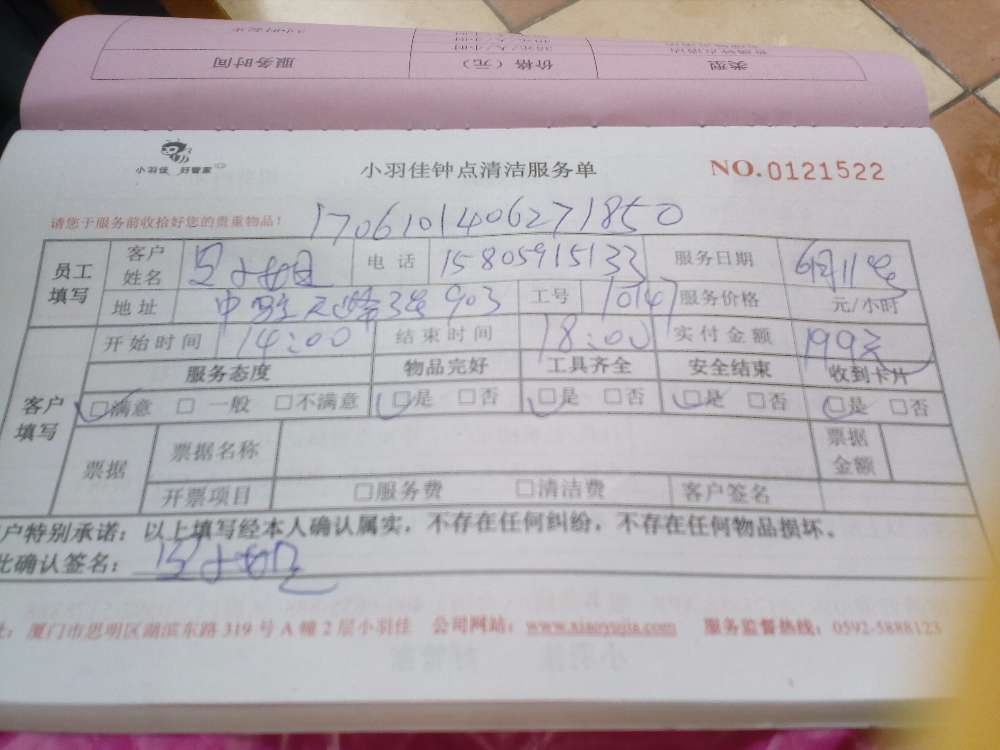 服务时间 价格（元） 类型
小羽佳 好管家
小羽佳钟点清洁服务单 NO.0121522
请您于服务前收拾好您的贵重物品！
1706101406271850
员工填写 客户姓名 小姐 电话 15805915133 服务日期 6月11号
地址 3号903 工号 10147 服务价格 元/小时
开始时间 14:00 结束时间 18:00 实付金额 199元
客户填写 服务态度 物品完好 工具齐全 安全结束 收到卡片
□满意 □一般 □不满意 □是 □否 □是 □否 □是 □否 □是 □否
票据 票据名称 票据金额
开票项目 □服务费 □清洁费 客户签名
户特别承诺：以上填写经本人确认属实，不存在任何纠纷，不存在任何物品损坏。
此确认签名： 小姐
址：厦门市思明区湖滨东路319号A幢2层小羽佳 公司网站：www.xiaoyujia.com 服务监督热线：0592-5888123